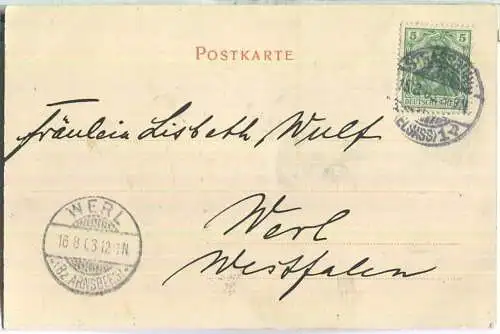 5
DEUTSCHES REICH
POSTKARTE
STRASSBURG
(ELSASS) 1
Fräulein Lisbeth Wulf
Werl
Westfalen
WERL
16.8.03.12-1N
(BZ. ARNSBERG)